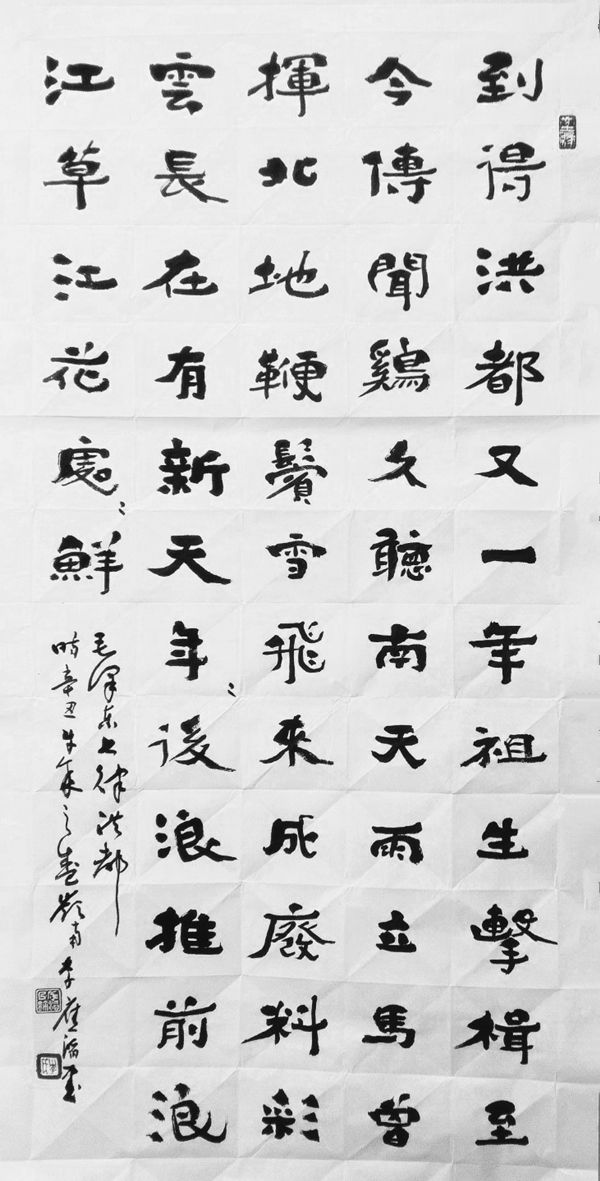 到得洪都又一年祖生擊楫至
今傳聞鷄久聽南天雨立馬曾
揮北地鞭鬢雪飛來成廢料彩
雲長在有新天年〻後浪推前浪
江草江花處〻鮮
毛澤东七律洪都
時辛丑牛年之春嶺南李